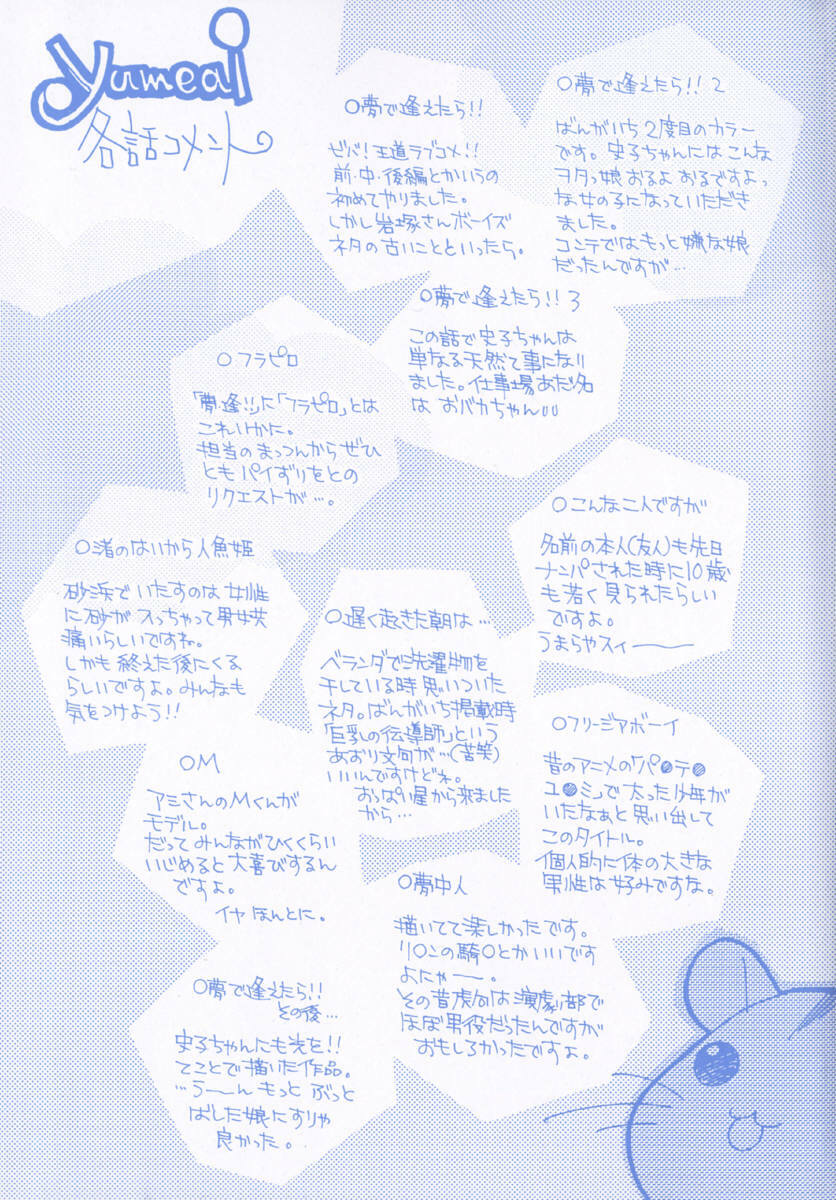 yumeai
各話コメント
○夢で逢えたら!!
ビバ!王道ラブコメ!!
前・中・後編とかいうの
初めてやりました。
しかし岩塚さんボーイズ
ネタの古いことといったら。
○夢で逢えたら!! 2
ばんがいち2度目のカラー
です。史子ちゃんにはこんな
ヲタっ娘おるよおるですよっ
な女の子になっていただき
ました。
コンテではもっと嫌な娘
だったんですが…
○夢で逢えたら!! 3
この話で史子ちゃんは
単なる天然て事になり
ました。仕事場あだ名
はおバカちゃん
○フラピロ
「夢・逢!!」に「フラピロ」とは
これいかに。
担当のまっつんからぜひ
ともパイずりをとの
リクエストが…。
○こんな二人ですが
名前の本人(友人)も先日
ナンパされた時に10歳
も若く見られたらしい
ですよ。
うまらやスィーー
○渚のはいから人魚姫
砂浜でいたすのは女性
に砂が入っちゃって男女共
痛いらしいですね。
しかも終えた後にくる
らしいですよ。みんなも
気をつけよう!!
○遅く起きた朝は…
ベランダで洗濯物を
干している時思いついた
ネタ。ばんがいち掲載時
「巨乳の伝導師」という
あおり文句が…(苦笑)
いいんですけどね。
おっぱい星から来ました
から…
○フリージアボーイ
昔のアニメの「パ●テ●
ユ●ミ」で太った少年が
いたなぁと思い出して
このタイトル。
個人的に体の大きな
男性は好みですな。
○M
アミさんのMくんが
モデル。
だってみんながひくくらい
いじめると大喜びするん
ですよ。
イヤほんとに。
○夢中人
描いてて楽しかったです。
リ○ンの騎○とかいいです
よにゃー。
その昔虎向は演劇部で
ほぼ男役だったんですが
おもしろかったですよ。
○夢で逢えたら!!
その後…
史子ちゃんにも光を!!
てことで描いた作品。
…うーんもっとぶっと
ばした娘にすりゃ
良かった。